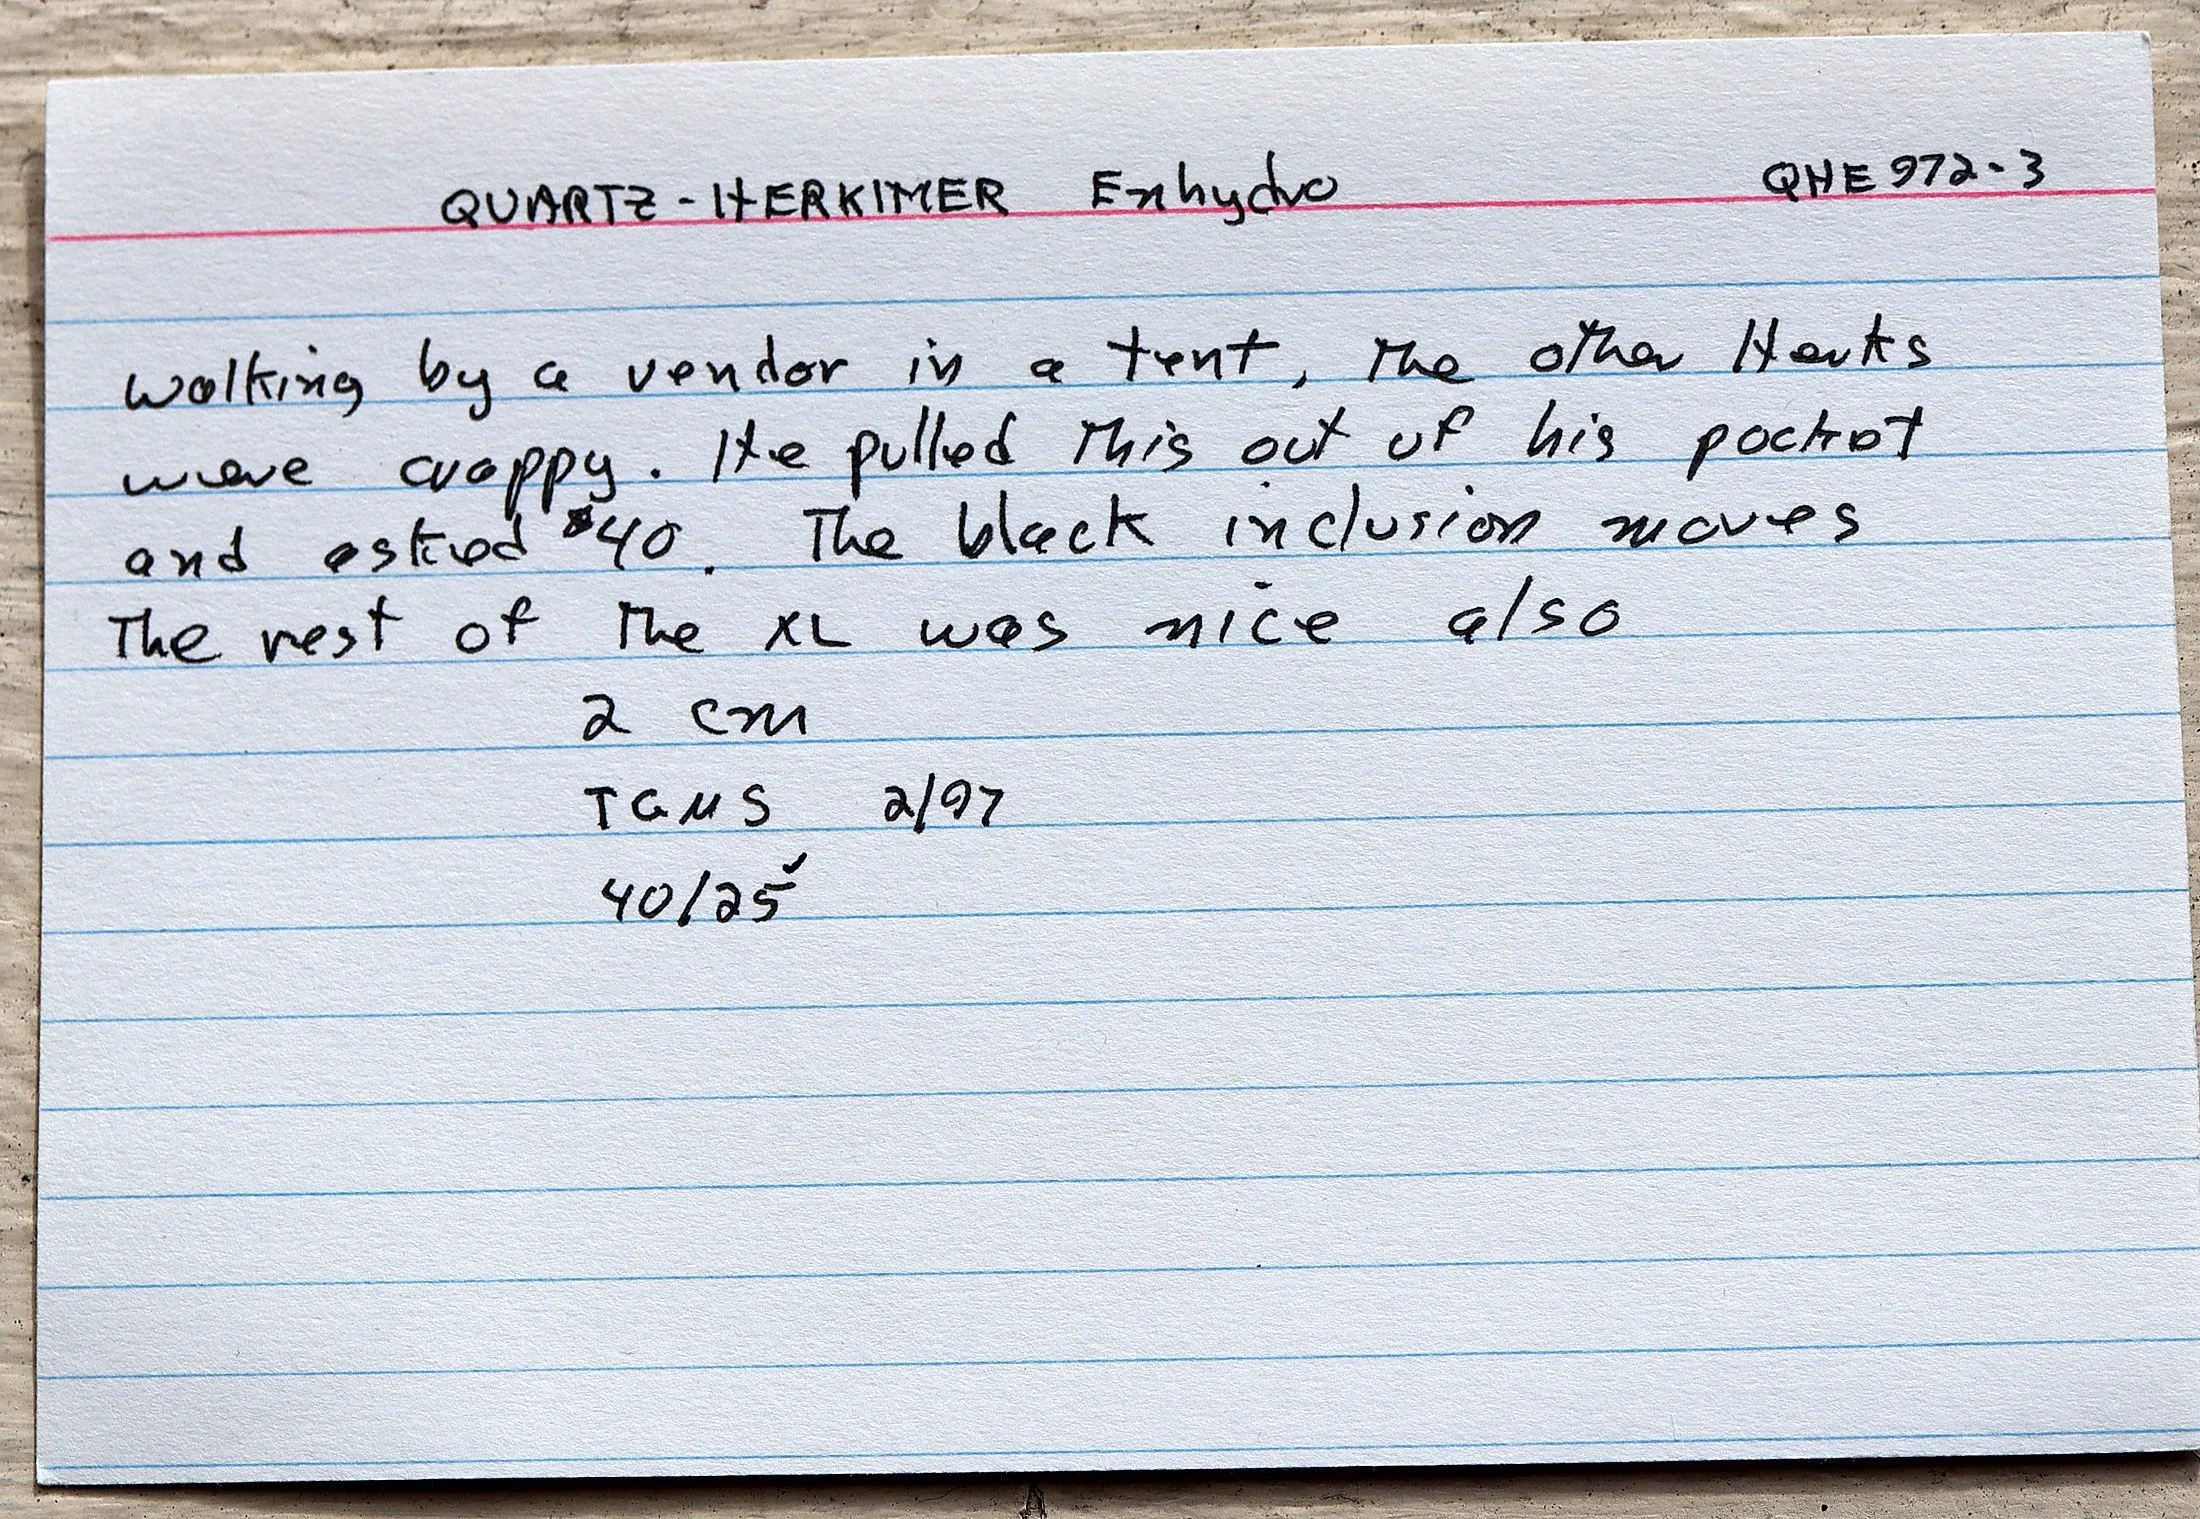 QUARTZ - HERKIMER Enhydro QHE 972-3
Walking by a vendor in a tent, The other Herks
were crappy. He pulled This out of his pocket
and asked $40. The black inclusion moves
The rest of The XL was nice also
2 cm
TGMS 2/97
40/25✓